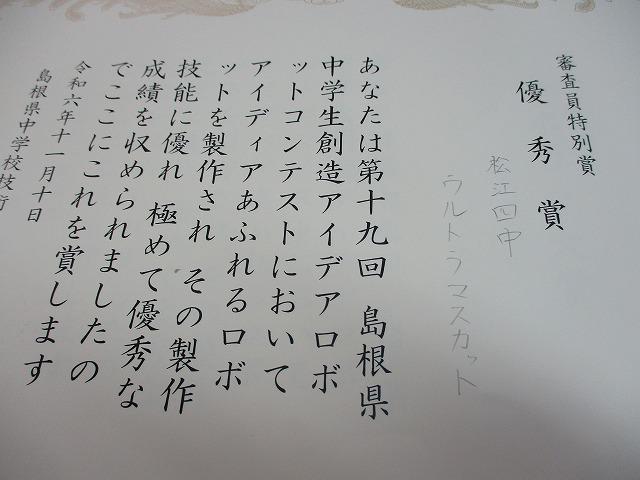 審査員特別賞
優秀賞
松江四中
ウルトラマスカット
あなたは第十九回 島根県
中学生創造アイデアロボ
ットコンテストにおいて
アイディアあふれるロボ
ットを製作され その製作
技能に優れ 極めて優秀な
成績を収められましたの
でここにこれを賞します
令和六年十一月十日
島根県中学校技